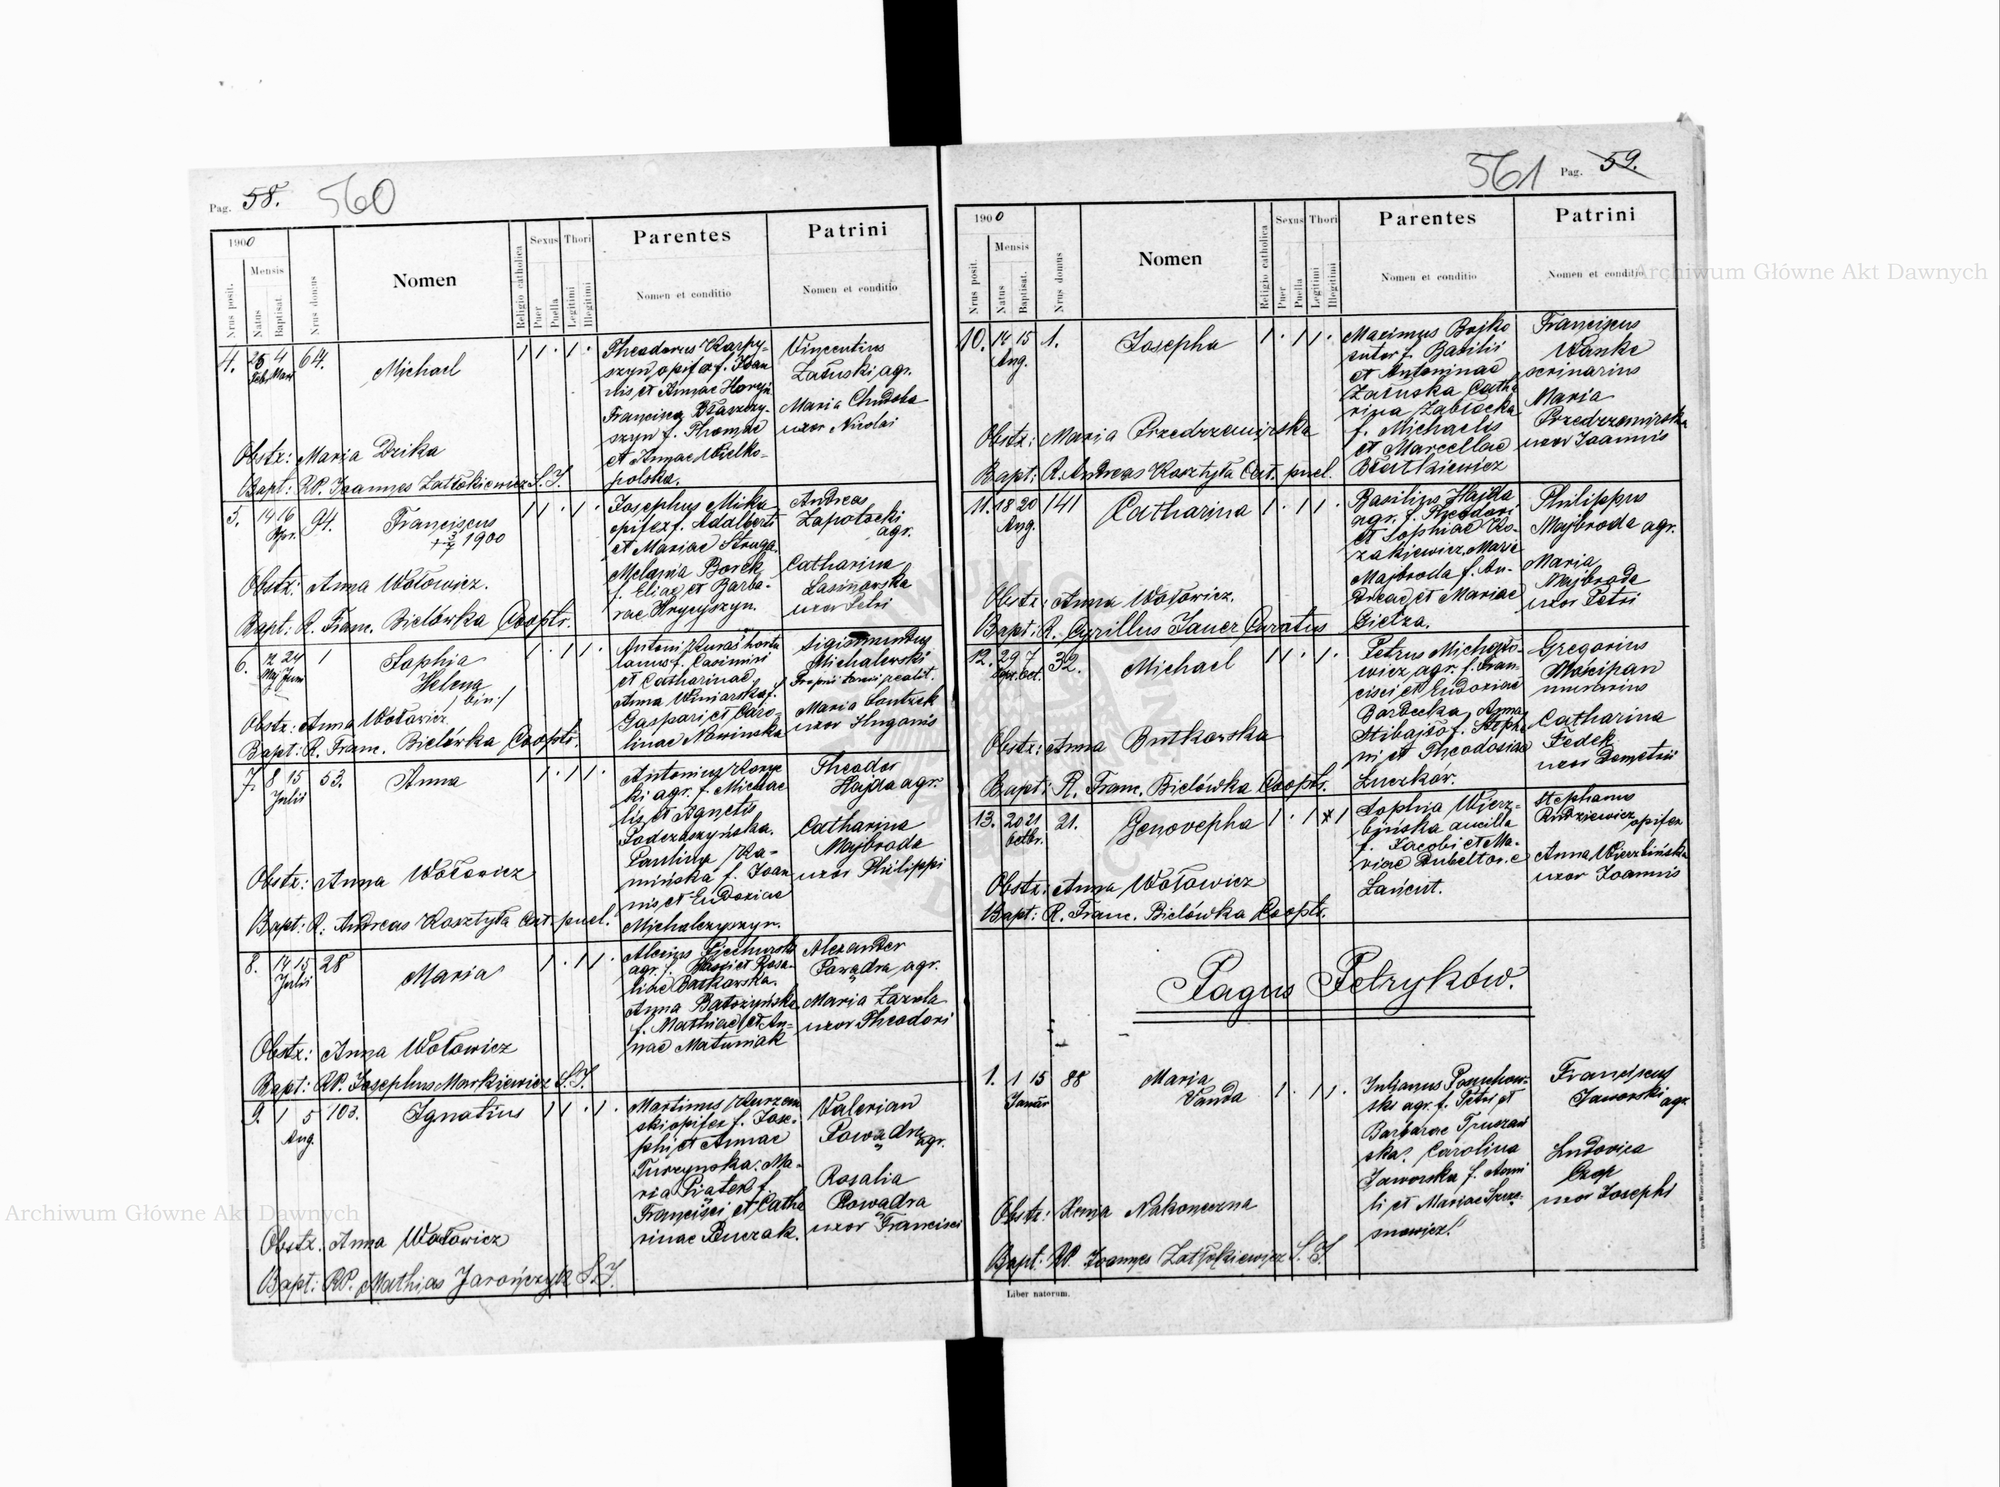 Pag. 58. 560
1900
Nrus posit.
Mensis
Natus
Baptisat.
Nrus domus
Nomen
Religio catholica
Sexus
Puer
Puella
Thori
Legitimi
Illegitimi
Parentes
Nomen et conditio
Patrini
Nomen et conditio
4. 26 4 64. Michael 1 1 . 1 .
Febr. Mart.
Theodorus Karpy-
szyn opifex f. Joan
nis et Annae
Francisca Błaszczy-
szyn f. Thomae
et Annae Wielko-
polska.
Vincentius
Załuski agr.
Maria Chudoba
uxor Nicolai
Obstr: Maria Dzika
Bapt: RP. Joannes Załłokiewicz S.J.
5. 14 16 94. Franciscus 1 1 . 1 .
Apr.
+ 3/7 1900
Josephus Mika
opifex f. Adalberti
et Mariae Struga.
Melania Borek
f. Eliae et Barba-
rae Hrycyszyn.
Andreas
Zapotocki
agr.
Catharina
uxor Petri
Obstr: Anna Wołowicz.
Bapt: R. Franc. Bielówka Cooptr.
6. 12 24 1 Sophia 1 . 1 1 .
Maj Juni
Helena
/bin./
Antoni Kuraś hortu
lanus f. Casimiri
et Catharinae
Anna Winiarska f.
Gaspari et Caro-
linae Nowinska
Sigismundus
Michalewski
Maria
uxor Hugonis
Obstr: Anna Wołowicz.
Bapt: R. Franc. Bielówka Cooptr.
7. 8 15 53. Anna 1 . 1 1 .
Julii
Antonius
ki agr. f. Michae
lis et Agnetis
Paulina Ka-
mińska f. Joan
nis et Eudoxiae
Michalczyszyn.
Theodor
Hajda agr.
Catharina
Majbroda
uxor Philippi
Obstr: Anna Wołowicz
Bapt: R. Andreas Kosztyła Cat. puel.
8. 14 15 28 Maria 1 . 1 1 .
Julii
agr. f. et Rosa-
liae Butkowska.
Anna
f. Mathiae et An-
nae Matuniak
Alexander
Powądra agr.
Maria Zazula
uxor Theodori
Obstr: Anna Wołowicz
Bapt: RP. Josephus Markiewicz S.J.
9. 1 5 103. Ignatius 1 1 . 1 .
Aug.
Martinus
ski opifex f. Jose-
phi et Annae
Turzynska. Ma-
ria Piątek f.
Francisci et Catha
rinae Buczak.
Valerian
Powądra
agr.
Rosalia
Powądra
uxor Francisci
Obstr: Anna Wołowicz
Bapt: RP. Mathias Jarończyk S.J.
561 Pag. 59.
1900
Nrus posit.
Mensis
Natus
Baptisat.
Nrus domus
Nomen
Religio catholica
Sexus
Puer
Puella
Thori
Legitimi
Illegitimi
Parentes
Nomen et conditio
Patrini
Nomen et conditio
10. 14 15 1. Josepha 1 . 1 1 .
Aug.
Maximus Bojko
sutor f. Basilii
et Antoninae
Załuska Catha
rina Zabłocka
f. Michaelis
et Marcellae
Bratkiewicz
Franciscus
Wanke
scriniarius
Maria
Przedrzemirska
uxor Joannis
Obstr: Maria Przedrzemirska
Bapt: R. Andreas Kosztyła Cat. puel.
11. 18 20 141 Catharina 1 . 1 1 .
Aug.
Basilius Hajda
agr. f. Theodori
et Sophiae Ko-
zakiewicz, Maria
Majbroda f. An-
dreae et Mariae
Gietza.
Philippus
Majbroda agr.
Maria
Majbroda
uxor Petri
Obstr: Anna Wołowicz.
Bapt: R. Cyrillus Jauer Curatus
12. 29 7 32. Michael 1 1 . 1 .
Spr. Oct.
Petrus
wicz agr. f. Fran-
cisci et Eudoxiae
Barbecka, Anna
f. Stepha
ni et Theodosiae
Łuczków.
Gregorius
Mocipan
murarius
Catharina
Fedek
uxor Demetrii
Obstr: Anna Butkowska
Bapt: R. Franc. Bielówka Cooptr.
13. 20 21 21. Genovepha 1 . 1 1
Octbr.
Sophia Wierz-
bińska ancilla
f. Jacobi et Ma-
riae Dubelt or. e
Łańcut.
Stephanus
Rudziewicz opifex
Anna Wierzbińska
uxor Joannis
Obstr: Anna Wołowicz
Bapt: R. Franc. Bielówka Cooptr.
Pagus Petryków.
1. 1 15 88 Maria 1 . 1 1 .
Januar
Vanda
Julianus
ski agr. f. Petri et
Barbarae
ska. Carolina
Jaworska f. 
li et Mariae
Franciscus
Jaworski
agr.
Ludovica
Czop
uxor Josephi
Obstr: Xenia Nakoneczna
Bapt: RP. Joannes Załłokiewicz S.J.
Liber natorum.
Archiwum Główne Akt Dawnych
Archiwum Główne Akt Dawnych